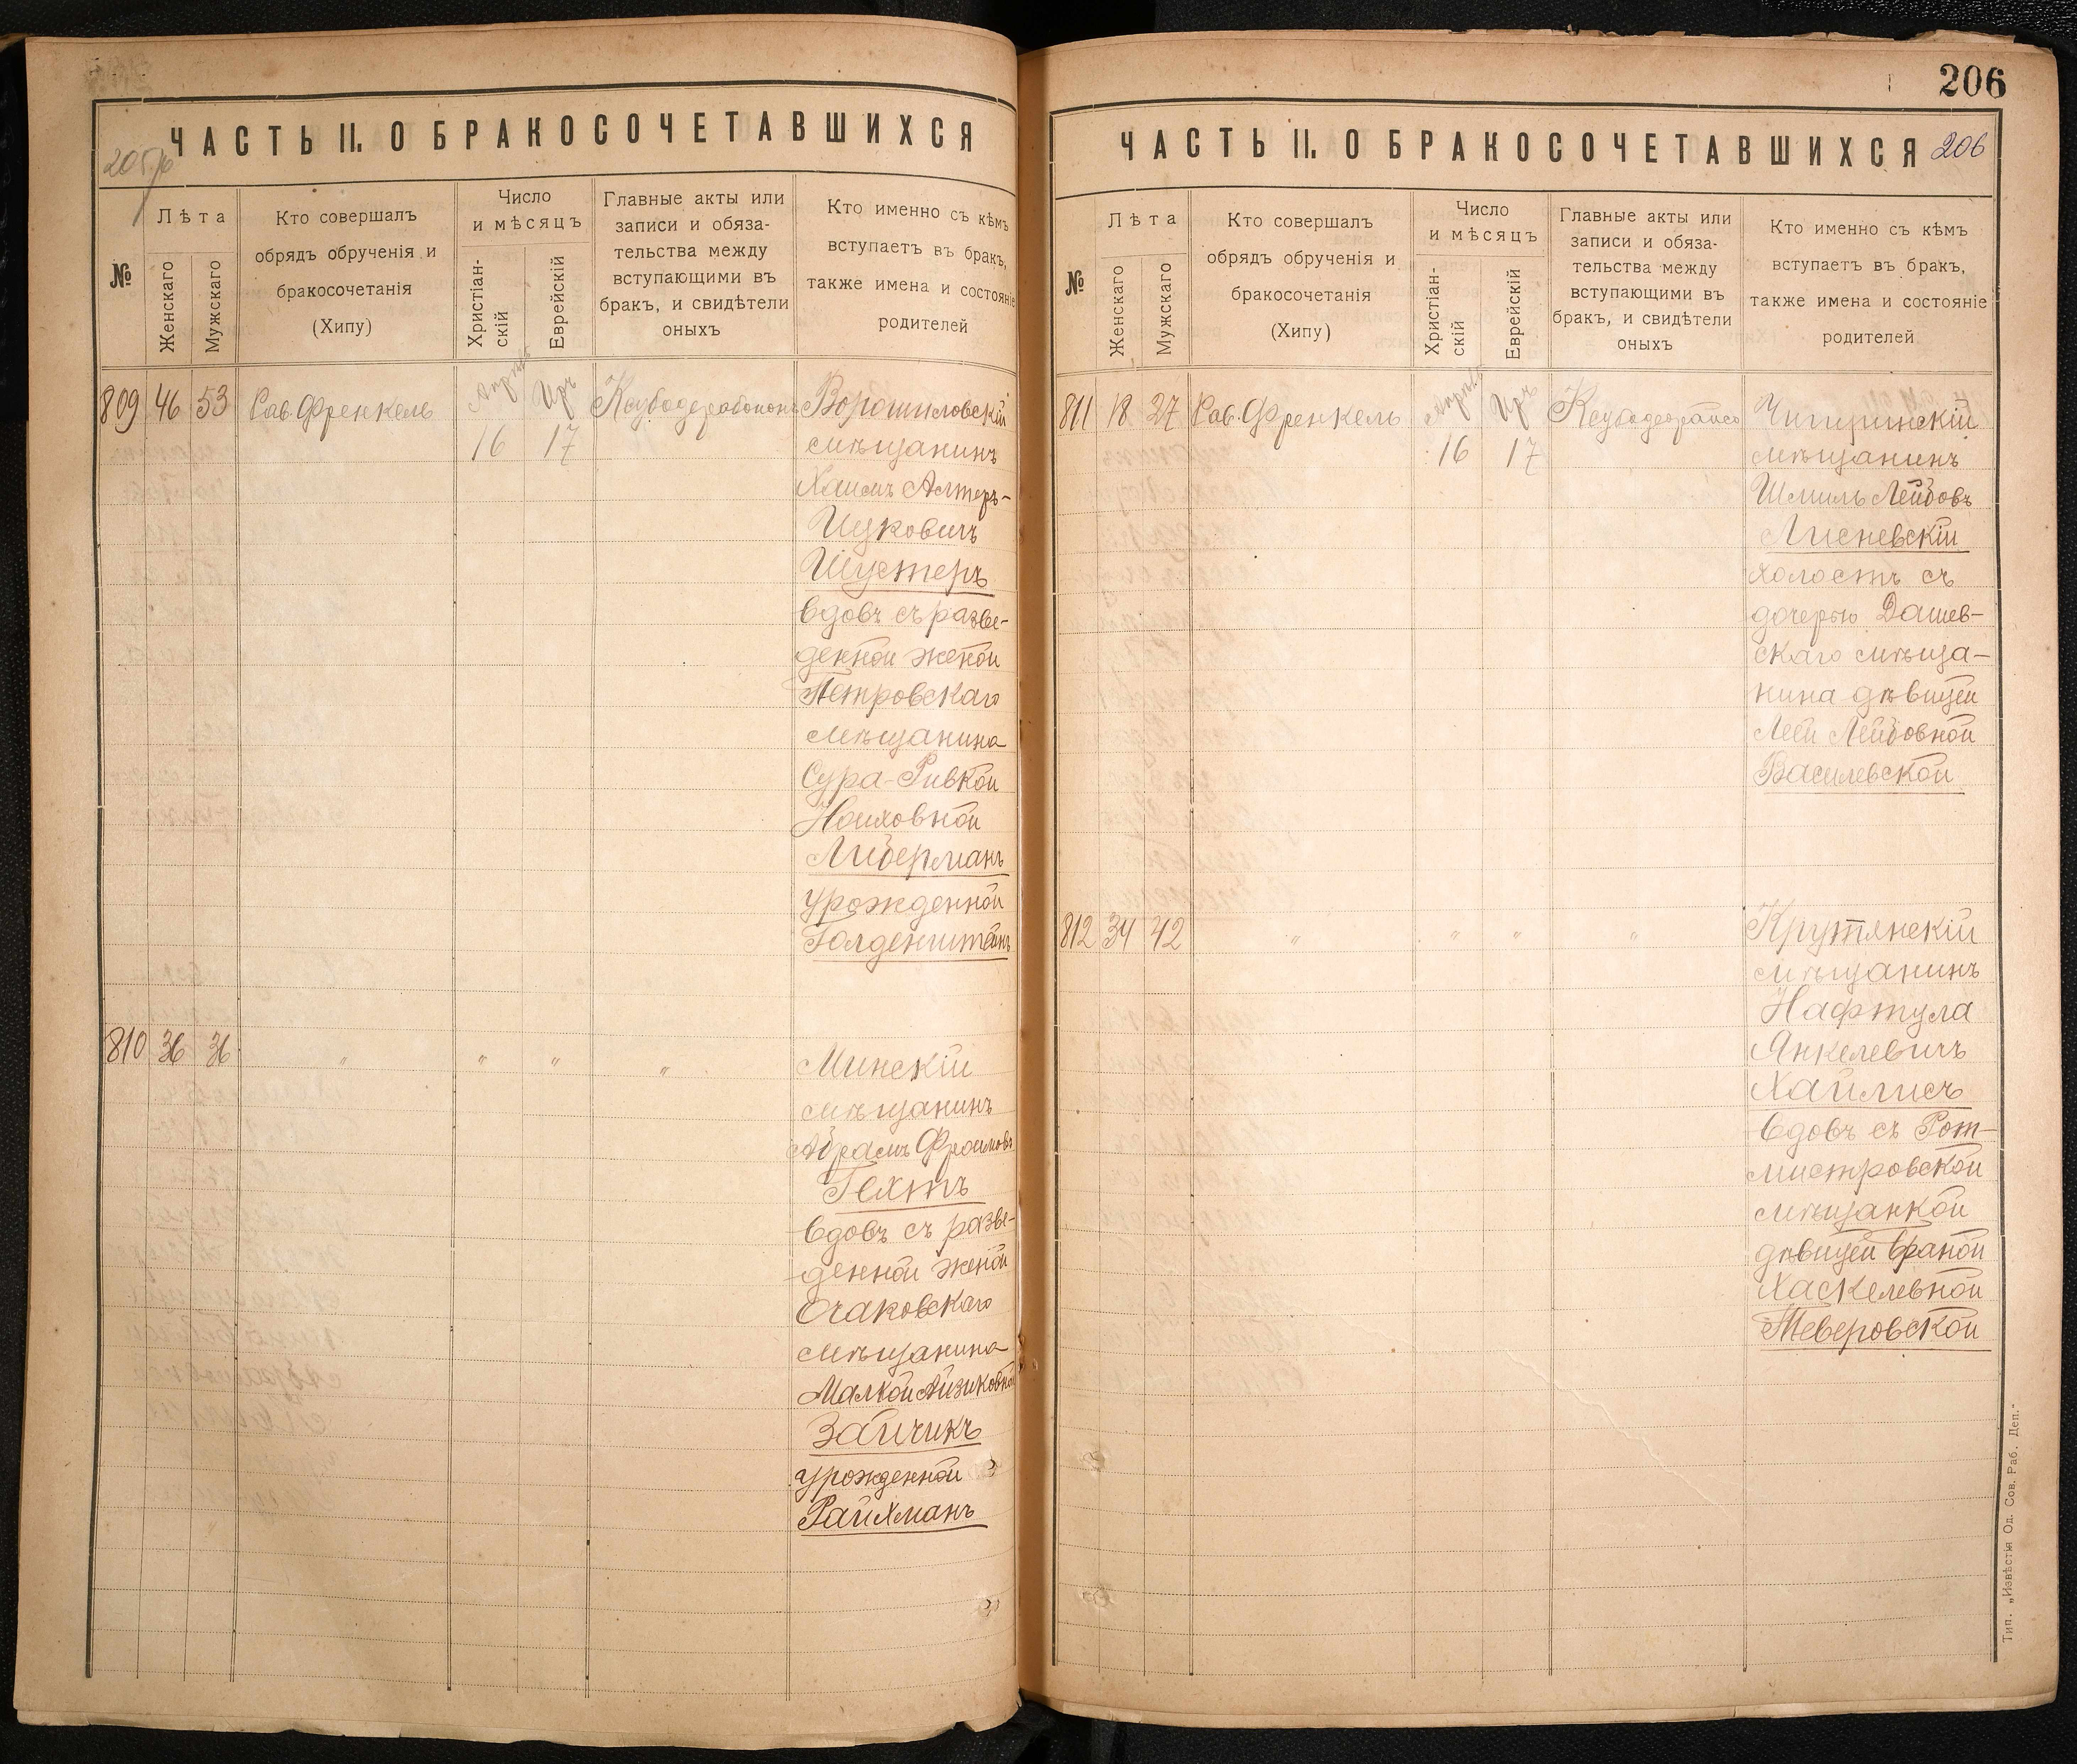 ЧАСТЬ II. О БРАКОСОЧЕТАВШИХСЯ
№
Лѣта
Женскаго
Мужскаго
Кто совершалъ
обрядъ обрученія и
бракосочетанія
(Хипу)
Число
и мѣсяцъ
Христіан-
скій
Еврейскій
Главные акты или
записи и обяза-
тельства между
вступающими въ
бракъ, и свидѣтели
оныхъ
Кто именно съ кѣмъ
вступаетъ въ бракъ,
также имена и состояніе
родителей
809 46 53 Рав. Френкель
16 17
Ворошиловскій
мѣщанинъ
Хаимъ Алтеръ-
Ицковичъ
Шустеръ
вдовъ съ разве-
денной женой
Петровскаго
мѣщанина
Сура-Ривкой
Нониховной
Либерманъ
урожденной
Голденштейнъ
810 36 36 " " " "
Минскій
мѣщанинъ
Абрамъ Фроимовъ
Гехтъ
вдовъ съ разве-
денной женой
Очаковскаго
мѣщанина
Малкой Айзиковной
Зайчикъ
урожденной
Райхманъ
206
ЧАСТЬ II. О БРАКОСОЧЕТАВШИХСЯ 206
№
Лѣта
Женскаго
Мужскаго
Кто совершалъ
обрядъ обрученія и
бракосочетанія
(Хипу)
Число
и мѣсяцъ
Христіан-
скій
Еврейскій
Главные акты или
записи и обяза-
тельства между
вступающими въ
бракъ, и свидѣтели
оныхъ
Кто именно съ кѣмъ
вступаетъ въ бракъ,
также имена и состояніе
родителей
811 18 27 Рав. Френкель
16 17
Чигиринскій
мѣщанинъ
Шмиль Лейбовъ
Лисневскій
холостъ съ
дочерью Дашев-
скаго мѣща-
нина дѣвицей
Леей Лейбовной
Василевской
812 34 42 " " " "
Крутянскій
мѣщанинъ
Нафтула
Янкелевичъ
Хайлисъ
вдовъ съ Рот-
мистровской
мѣщанкой
дѣвицей Браной
Хаскелевной
Теверовской
Тип. „Извѣстія Од. Сов. Раб. Деп.“